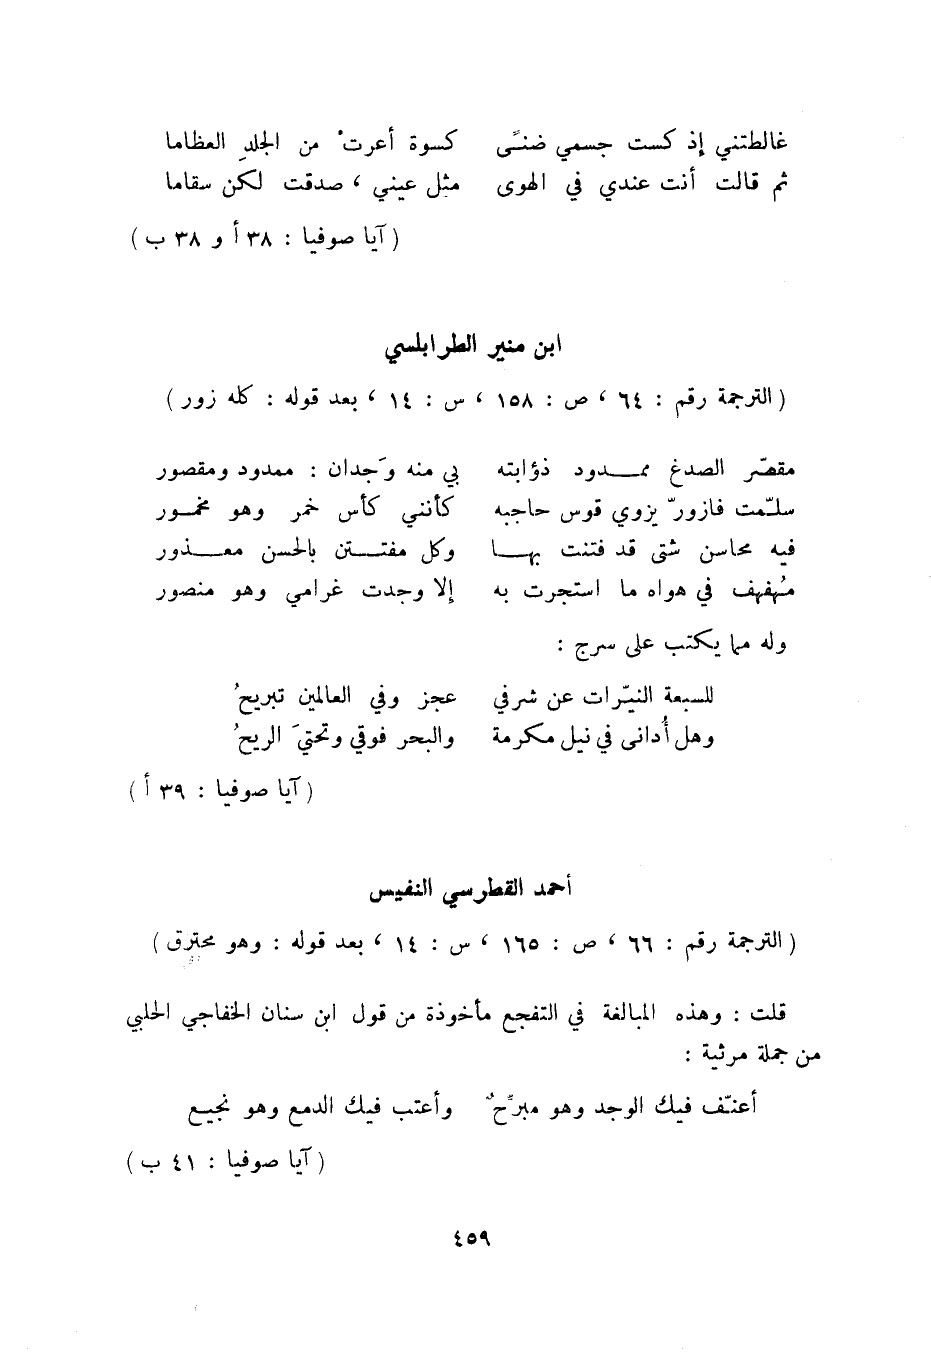 غالطتني إذ كست جسمي ضنىً كسوة أعرتْ من الجلدِ العظاما
ثم قالت أنت عندي في الهوى مثل عيني ، صدقت لكن سقاما
( آيا صوفيا : ٣٨ أ و ٣٨ ب )
ابن منير الطرابلسي
( الترجمة رقم : ٦٤ ، ص : ١٥٨ ، س : ١٤ ، بعد قوله : كله زور )
مقصّر الصدغ ممـــدود ذؤابته بي منه وَجدان : ممدود ومقصور
سلـّمت فازورّ يزوي قوس حاجبه كأنني كأس خمر وهو مخمـور
فيه محاسن شتى قد فتنت بهـــا وكل مفتـــتن بالحسن معـــذور
مُهفهف في هواه ما استجرت به إلا وجدت غرامي وهو منصور
وله مما يكتب على سرج :
للسبعة النيّرات عن شرفي عجز وفي العالمين تبريحُ
وهل أُدانى في نيل مكرمة والبحر فوقي وتحتيَ الريحُ
( آيا صوفيا : ٣٩ أ )
أحمد القطرسي النفيس
( الترجمة رقم : ٦٦ ، ص : ١٦٥ ، س : ١٤ ، بعد قوله : وهو محترق )
قلت : وهذه المبالغة في التفجع مأخوذة من قول ابن سنان الخفاجي الحلبي
من جملة مرثية :
أعنـّف فيك الوجد وهو مبرِّحٌ وأعتب فيك الدمع وهو نجيـع
( آيا صوفيا : ٤١ ب )
٤٥٩